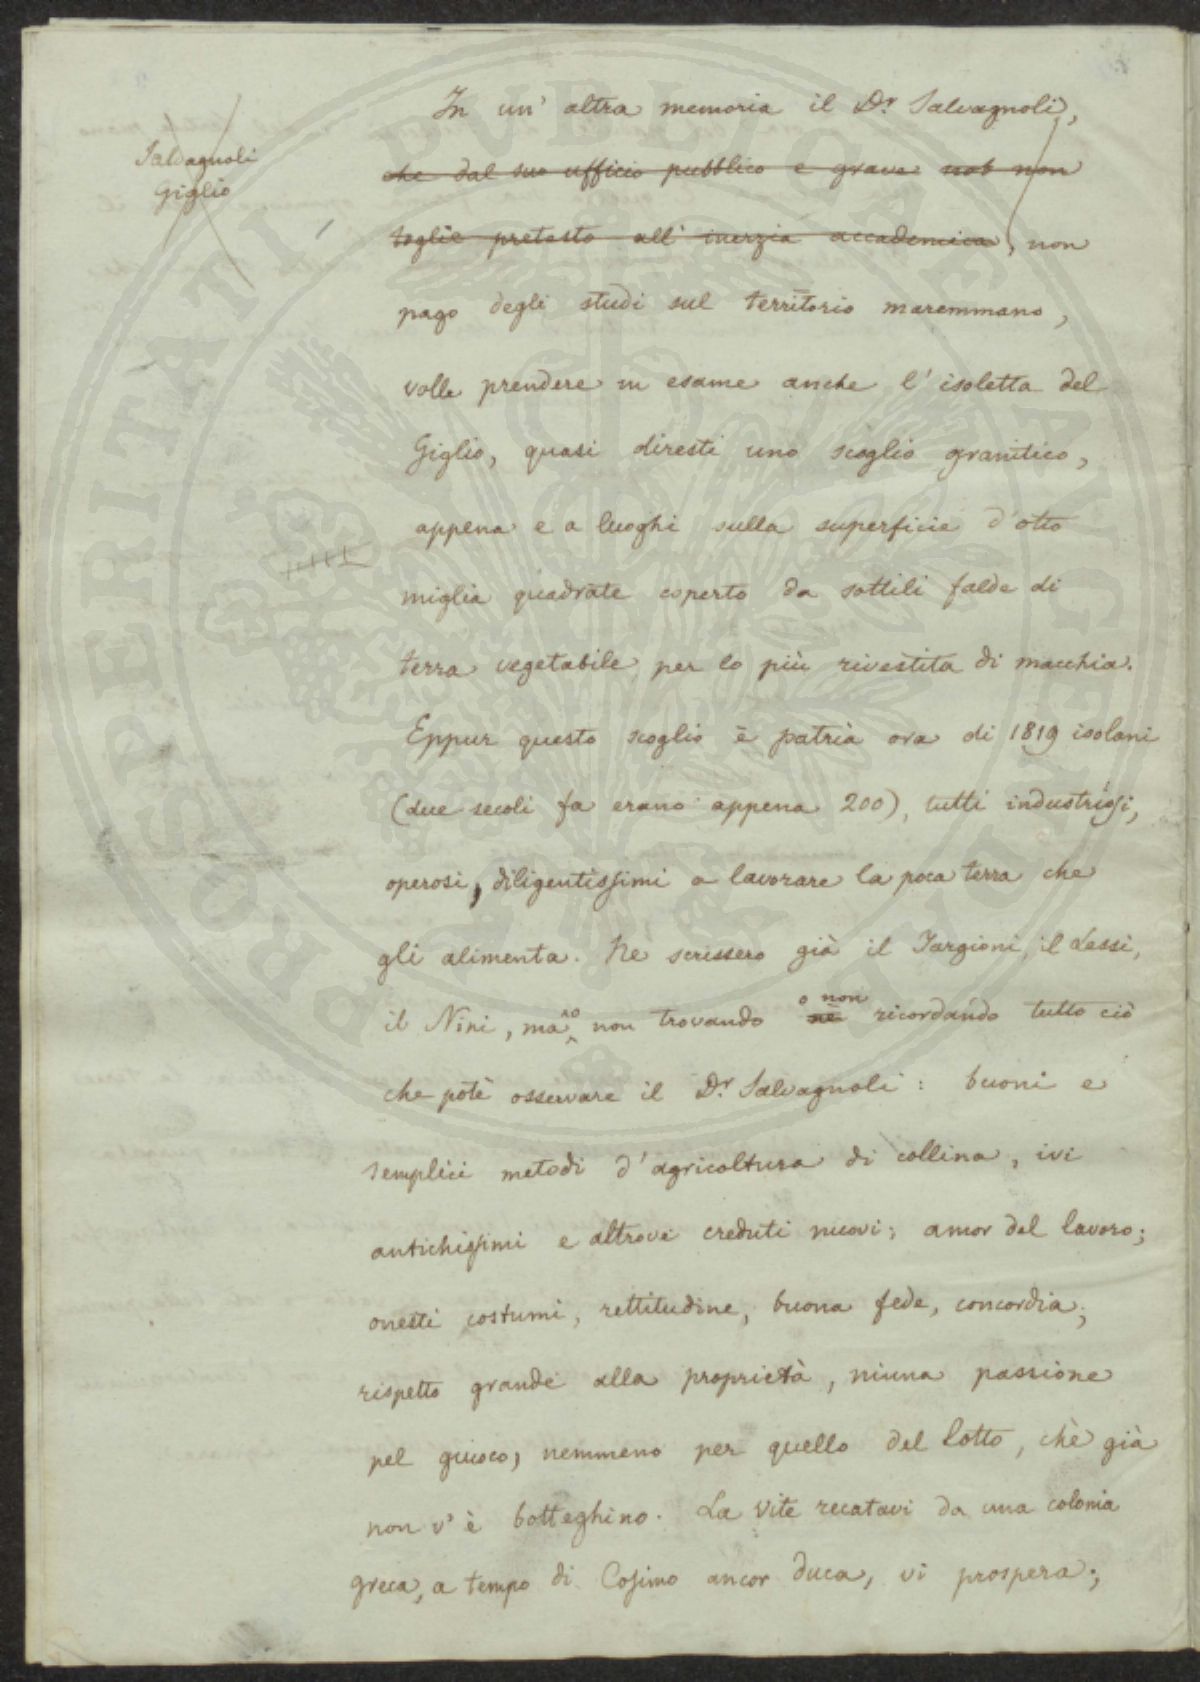 In un' altra memoria il Dr. Salvagnoli,
Salvagnoli
Giglio
che dal suo ufficio pubblico e grave non
toglie pretesto all' inerzia accademica, non
pago degli studi sul territorio maremmano,
volle prendere in esame anche l' isoletta del
Giglio, quasi diresti uno scoglio granitico,
appena e a luoghi sulla superficie d' otto
miglia quadrate coperto da sottili falde di
terra vegetabile per lo più rivestita di macchia.
Eppur questo scoglio è patria ora di 1819 isolani
(due secoli fa erano appena 200), tutti industriosi,
operosi, diligentissimi a lavorare la poca terra che
gli alimenta. Ne scrissero già il Targioni, il Lessi,
il Nini, ma no non trovando o non nè ricordando tutto ciò
che potè osservare il Dr. Salvagnoli: buoni e
semplici metodi d' agricoltura di collina, ivi
antichissimi e altrove creduti nuovi; amor del lavoro;
onesti costumi, rettitudine, buona fede, concordia;
rispetto grande alla proprietà, niuna passione
pel giuoco, nemmeno per quello del lotto, chè già
non v' è botteghino. La vite recatavi da una colonia
greca, a tempo di Cosimo ancor duca, vi prospera;
PROSPERITATI PVBLICAE AVGENDAE